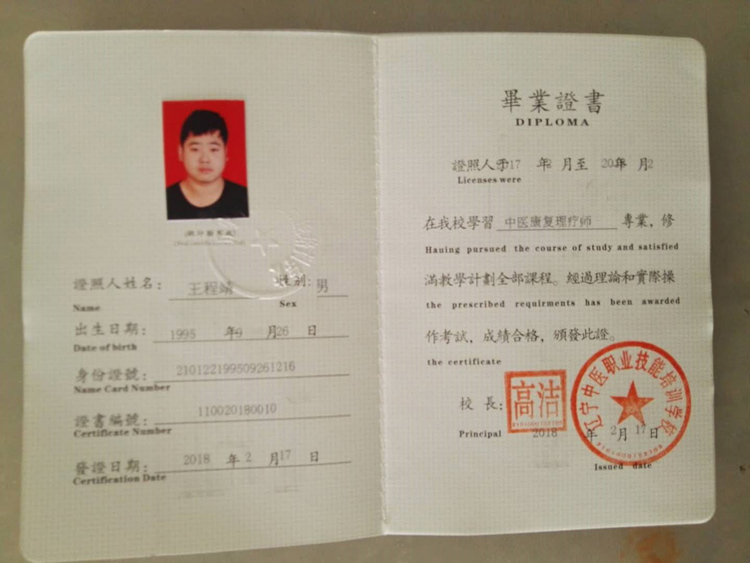 證照人姓名: 王程靖 性别: 男
Name Sex
出生日期: 1995 年9 月26 日
Date of birth
身份證號: 210122199509261216
Name Card Number
證書編號: 110020180010
Certificate Number
發證日期: 2018 年 2 月17 日
Certification Date
畢業證書
DIPLOMA
證照人于17 年2 月至 20 年 月2
Licenses were
在我校學習 中医康复理疗师 專業, 修
Hauing pursued the course of study and satisfied
滿教學計劃全部課程。經過理論和實際操
the prescribed requirments has been awarded
作考試, 成績合格, 頒發此證。
the certificate
校 長: 高洁
Principal 2018 年 2月 17日
Issued date
辽宁中医职业技能培训学校